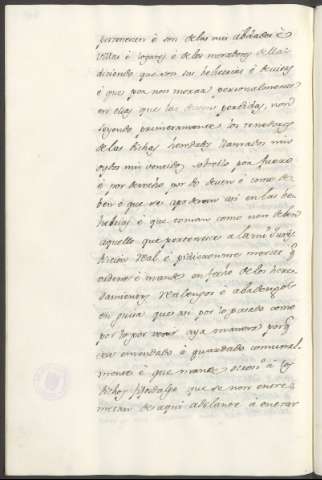 pertenecen è son delas mis cibdades è
villas è logares è de los moradores dellas
diciendo que son sus heredades è devisas
è que por non morar personalmente
en ellas que las devian perdidas, non
seyendo primeramente los tenedores
de las dichas heredades llamados nin
oydos nin vencidos sobrello por fuero
è por derecho por do deven è como de
ben è que se apoderavan asi en las be
hetrias è que toman como non deben
aquello que pertenece a la mi Juris
diccion Real è pidieronme merced q
ordene è mande en fecho de los here
damientos Realengos è abadengos
en guisa que asi por lo pasado como
por lo por venir aya manera porq
sea enmendado è guardado comunal
mente è que mande otrosi à los
dichos fijosdalgo que se non entre
metan de aqui adelante à entrar